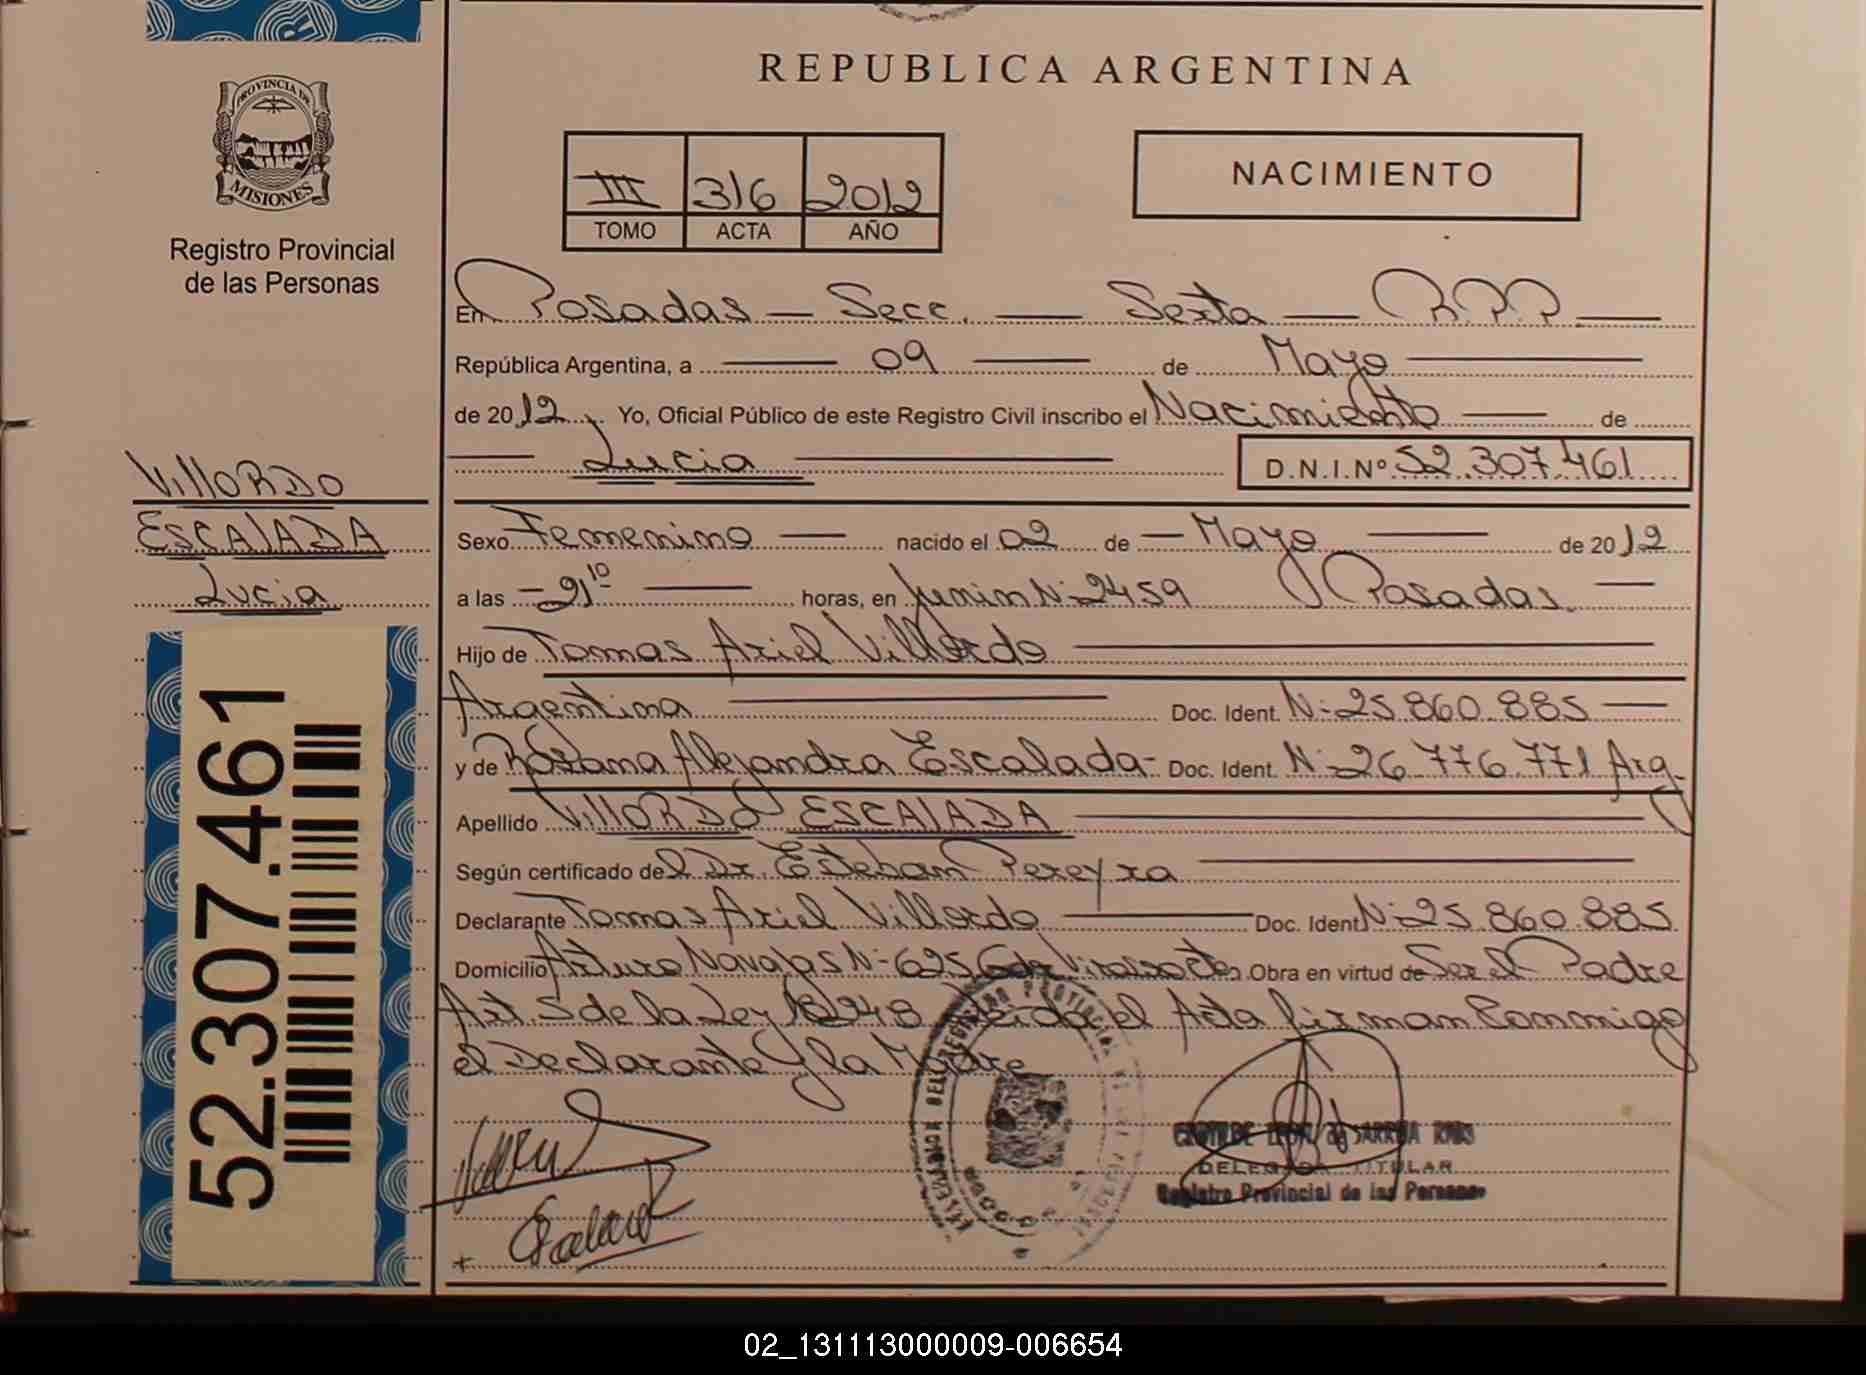 PROVINCIA DE
MISIONES
Registro Provincial
de las Personas
REPUBLICA ARGENTINA
III 316 2012
TOMO ACTA AÑO
NACIMIENTO
En Posadas — Secc. — Sexta — R.P.P. —
República Argentina, a — 09 — de Mayo —
de 2012. Yo, Oficial Público de este Registro Civil inscribo el Nacimiento — de
— Lucia — D.N.I.Nº 52.307.461
VillORDO
ESCAlADA
Lucia
Sexo Femenino — nacido el 02 de — Mayo — de 2012
a las — 21¹⁰ — horas, en Junin Nº 2459 Posadas. —
Hijo de Tomas Ariel Villordo —
Argentina — Doc. Ident. Nº 25.860.885 —
y de Rosana Alejandra Escalada - Doc. Ident. Nº 26.776.771 Arg.
Apellido VillORDO ESCAlADA —
Según certificado del Dr. Esteban Pereyra —
Declarante Tomas Ariel Villordo — Doc. Ident. Nº 25.860.885
Domicilio Arturo Navajas Nº 625 Gdor Virasoro Ctes. Obra en virtud de Ser el Padre
Art. 5 de la Ley 18248 Leida el Acta firman Conmigo
el Declarante y la Madre
DELEGADA TITULAR
Registro Provincial de las Personas
Escalada
52.307.461
02_131113000009-006654